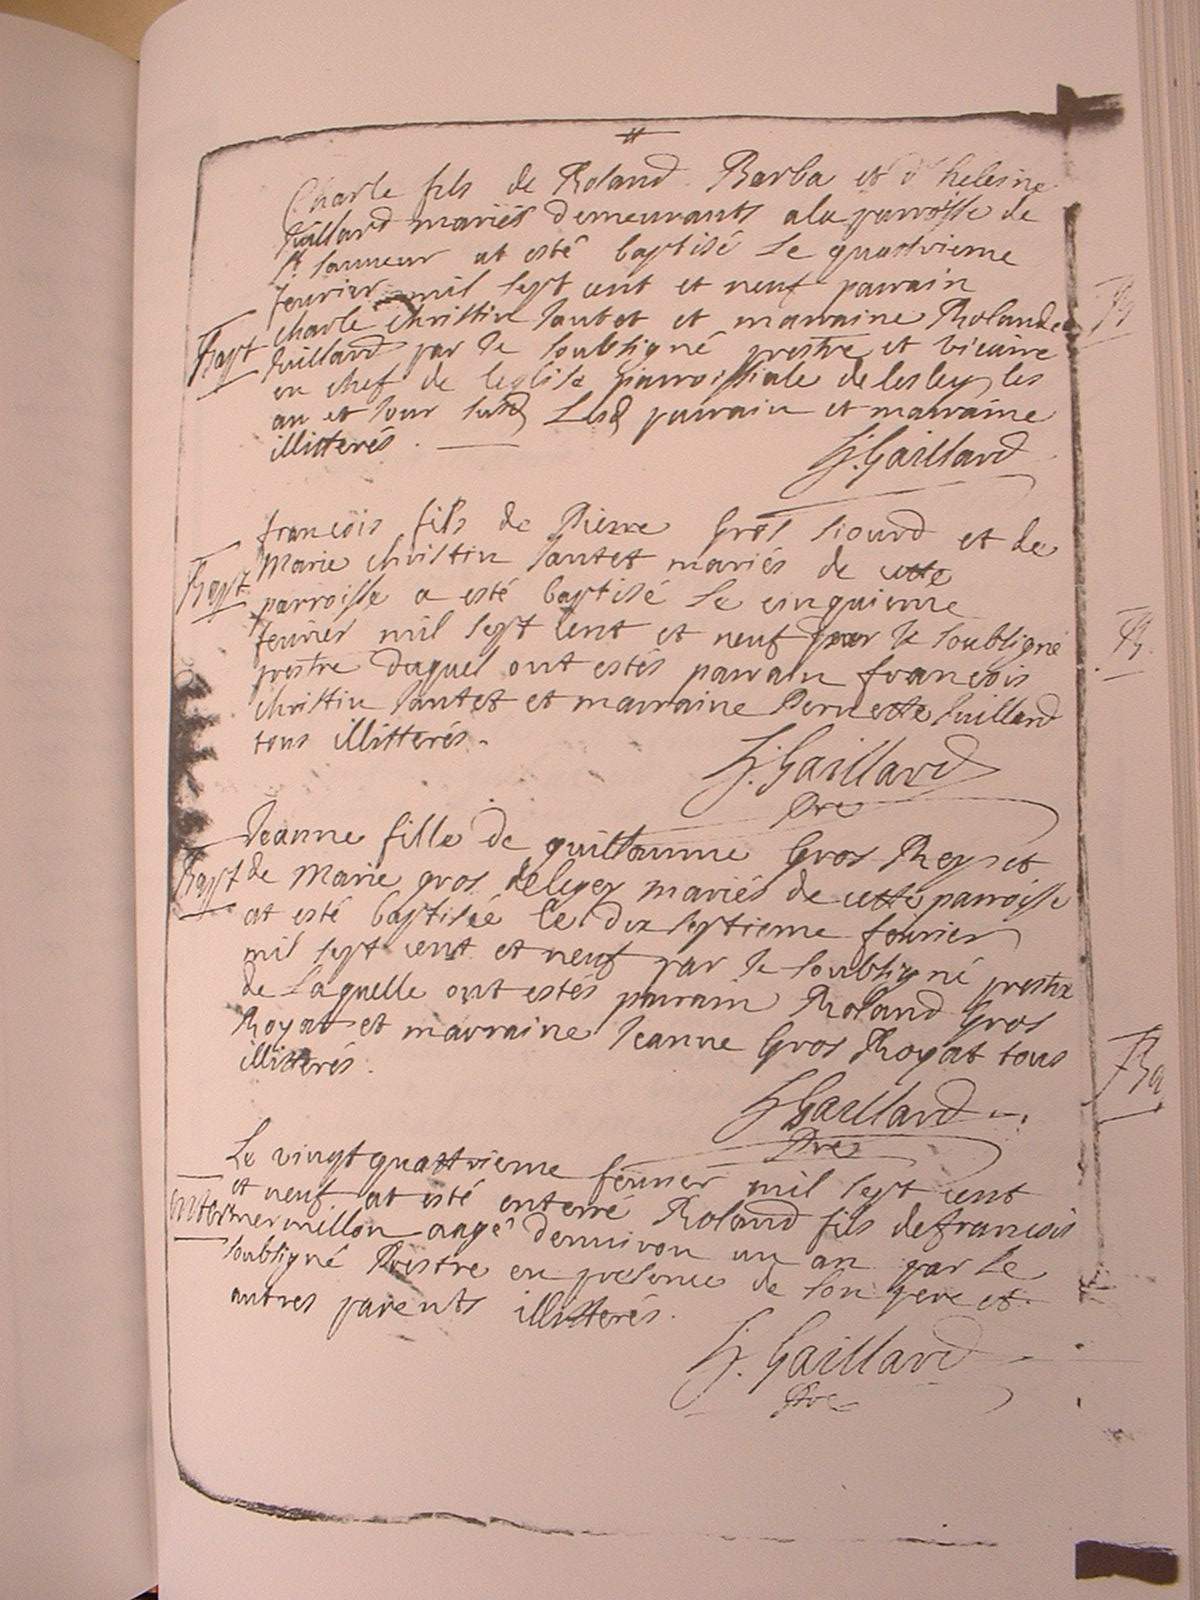 #
Charle fils de Roland Barba et d'helesne
Juillard mariés demeurants a la parroisse de
St sauueur at esté baptisé Le quattrieme
feurier mil sept cent et neuf parrain
Bapt charle christin Jantet et marraine Rolande
Juillard par le soubsigné prestre et vicaire
en chef de leglise parroissiale de lesley les
an et Jour susd Lesd parrain et marraine
illitterés.
J. Gaillard
françois fils de Pierre Gros et de
Marie christin Jantet mariés de cette
Bapt parroisse a esté baptisé Le cinquieme
feurier mil sept cent et neuf par le soubsigné
prestre duquel ont estés parrain françois
christin Jantet et marraine Pernette Juillard
tous illitterés.
J. Gaillard
Pre
Jeanne fille de guillaume Gros Rey et
Bapt de Marie gros mariés de cette parroisse
at esté baptisée Le dix septieme feurier
mil sept cent et neuf par le soubsigné prestre
de Laquelle ont estés parrain Roland Gros
Royat et marraine Jeanne Gros Royat tous
illitterés.
J Gaillard
Pre
Le vingt quattrieme feurier mil sept cent
et neuf at esté enterré Roland fils de francois
enter mermillon aagé denuiron un an par Le
soubsigné Prestre en presence de son pere et
autres parents illitterés.
J. Gaillard
Pre
B
B
Ba